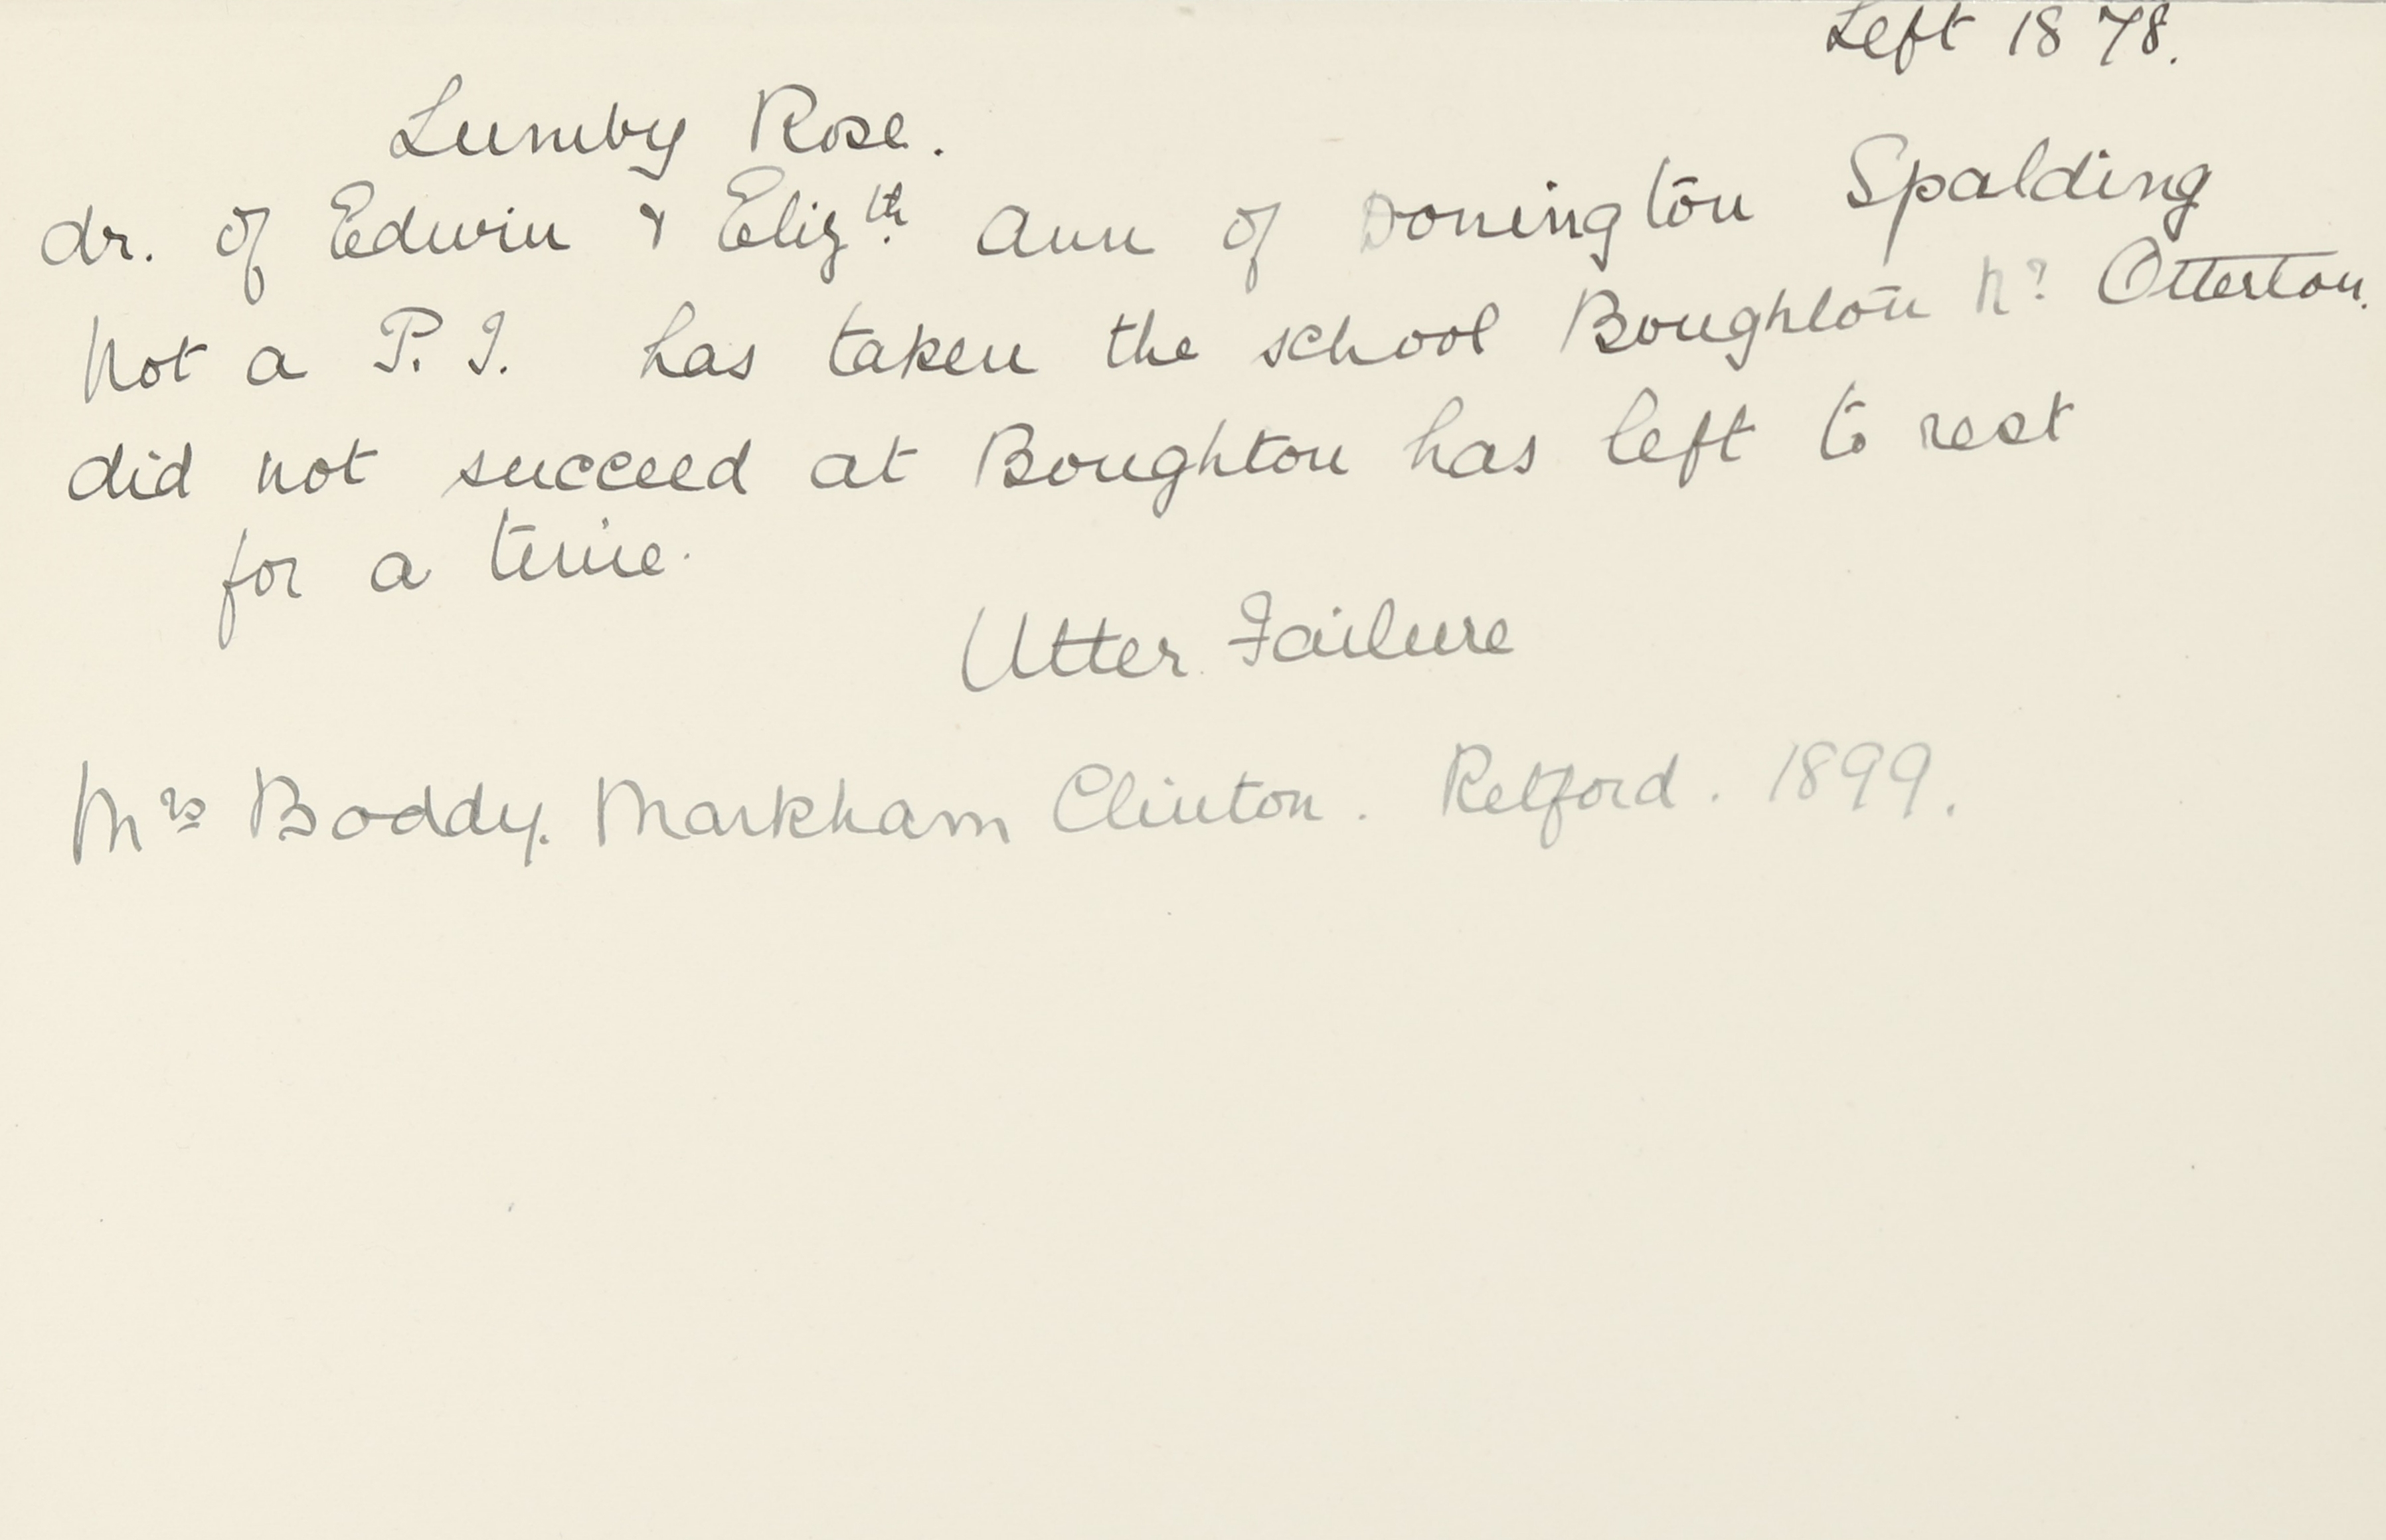 Left 1878.
Lumby Rose.
dr. of Edwin & Elizth Ann of Donington Spalding
Not a P. T. has taken the school Boughton Nr Otterton.
did not succeed at Boughton has left to rest
for a time.
Utter Failure
Mrs Boddy. Markham Clinton. Retford. 1899.